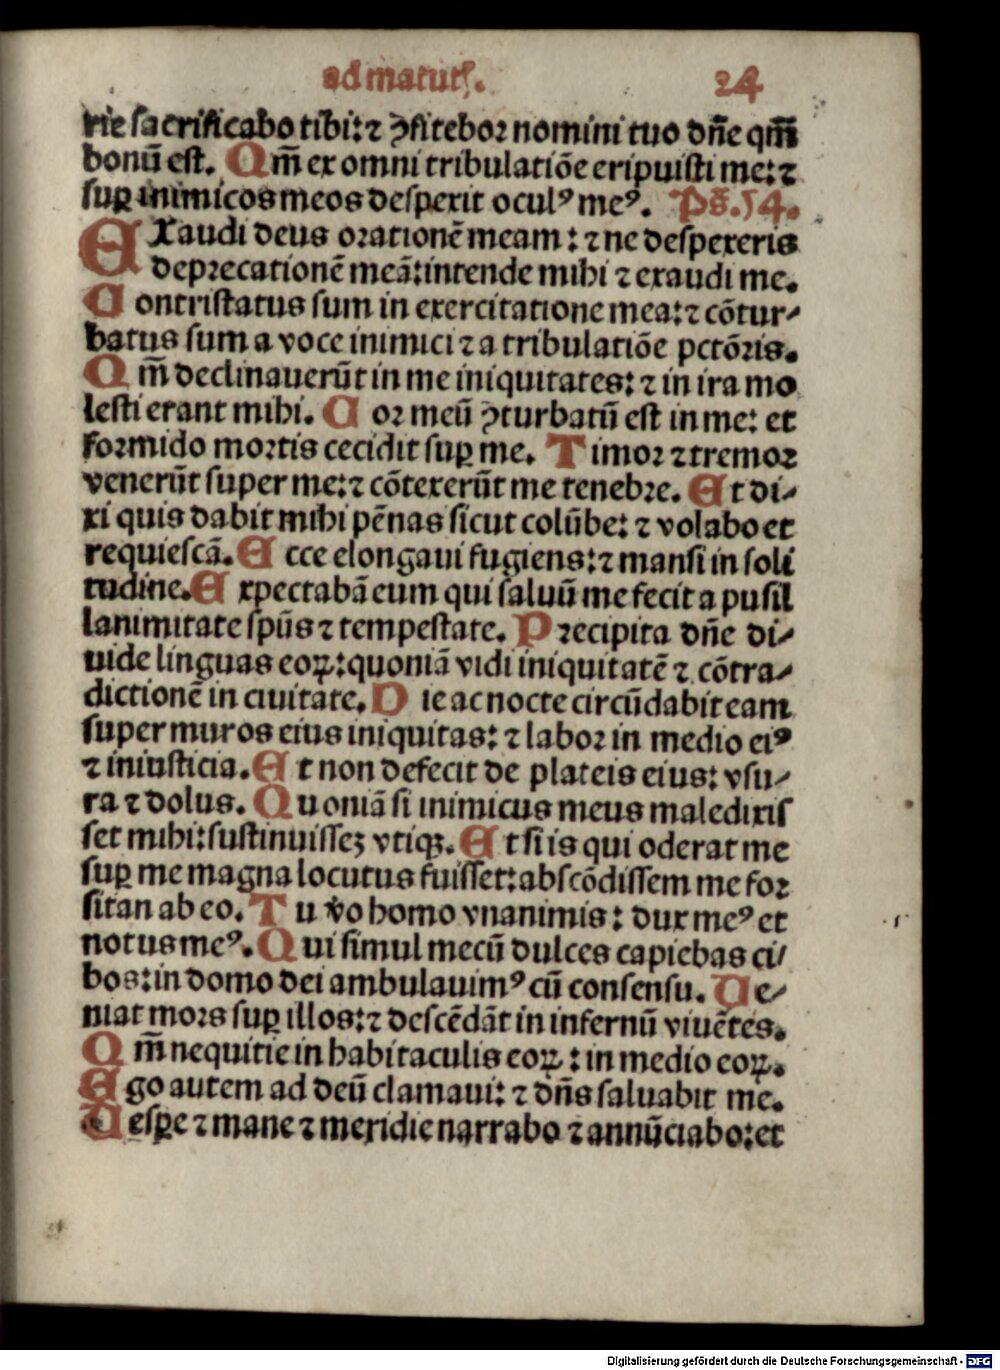 ad matut̃.
24
rie sacrificabo tibi: ⁊ ꝯfitebor nomini tuo dñe qm̃
bonũ est. Qm̃ ex omni tribulatiõe eripuisti me: ⁊
suꝑ inimicos meos despexit oculꝰ meꝰ. Ps̃. 54.
EXaudi deus orationẽ meam: ⁊ ne despexeris
deprecationẽ meã: intende mihi ⁊ exaudi me.
Contristatus sum in exercitatione mea: ⁊ cõtur-
batus sum a voce inimici ⁊ a tribulatiõe pctõris.
Qm̃ declinauerũt in me iniquitates: ⁊ in ira mo
lesti erant mihi. Cor meũ ꝯturbatũ est in me: et
formido mortis cecidit suꝑ me. Timor ⁊ tremor
venerũt super me: ⁊ cõtexerũt me tenebre. Et di-
xi quis dabit mihi pẽnas sicut colũbe: ⁊ volabo et
requiescã. Ecce elongaui fugiens: ⁊ mansi in soli
tudine. Expectabã eum qui saluũ me fecit a pusil
lanimitate sp̃us ⁊ tempestate. Precipita dñe di-
uide linguas eoꝝ: quoniã vidi iniquitatẽ ⁊ cõtra-
dictionẽ in ciuitate. Die ac nocte circũdabit eam
super muros eius iniquitas: ⁊ labor in medio eiꝰ
⁊ iniusticia. Et non defecit de plateis eius: vsu-
ra ⁊ dolus. Quoniã si inimicus meus maledixis
set mihi: sustinuisseꝫ vtiqꝫ. Et si is qui oderat me
suꝑ me magna locutus fuisset: abscõdissem me for
sitan ab eo. Tu v̾o homo vnanimis: dux meꝰ et
notus meꝰ. Qui simul mecũ dulces capiebas ci-
bos: in domo dei ambulauimꝰ cũ consensu. Ue-
niat mors suꝑ illos: ⁊ descẽdãt in infernũ viuẽtes.
Qm̃ nequitie in habitaculis eoꝝ: in medio eoꝝ.
Ego autem ad deũ clamaui: ⁊ dñs saluabit me.
Uesꝑe ⁊ mane ⁊ meridie narrabo ⁊ annũciabo: et
Digitalisierung gefördert durch die Deutsche Forschungsgemeinschaft - DFG